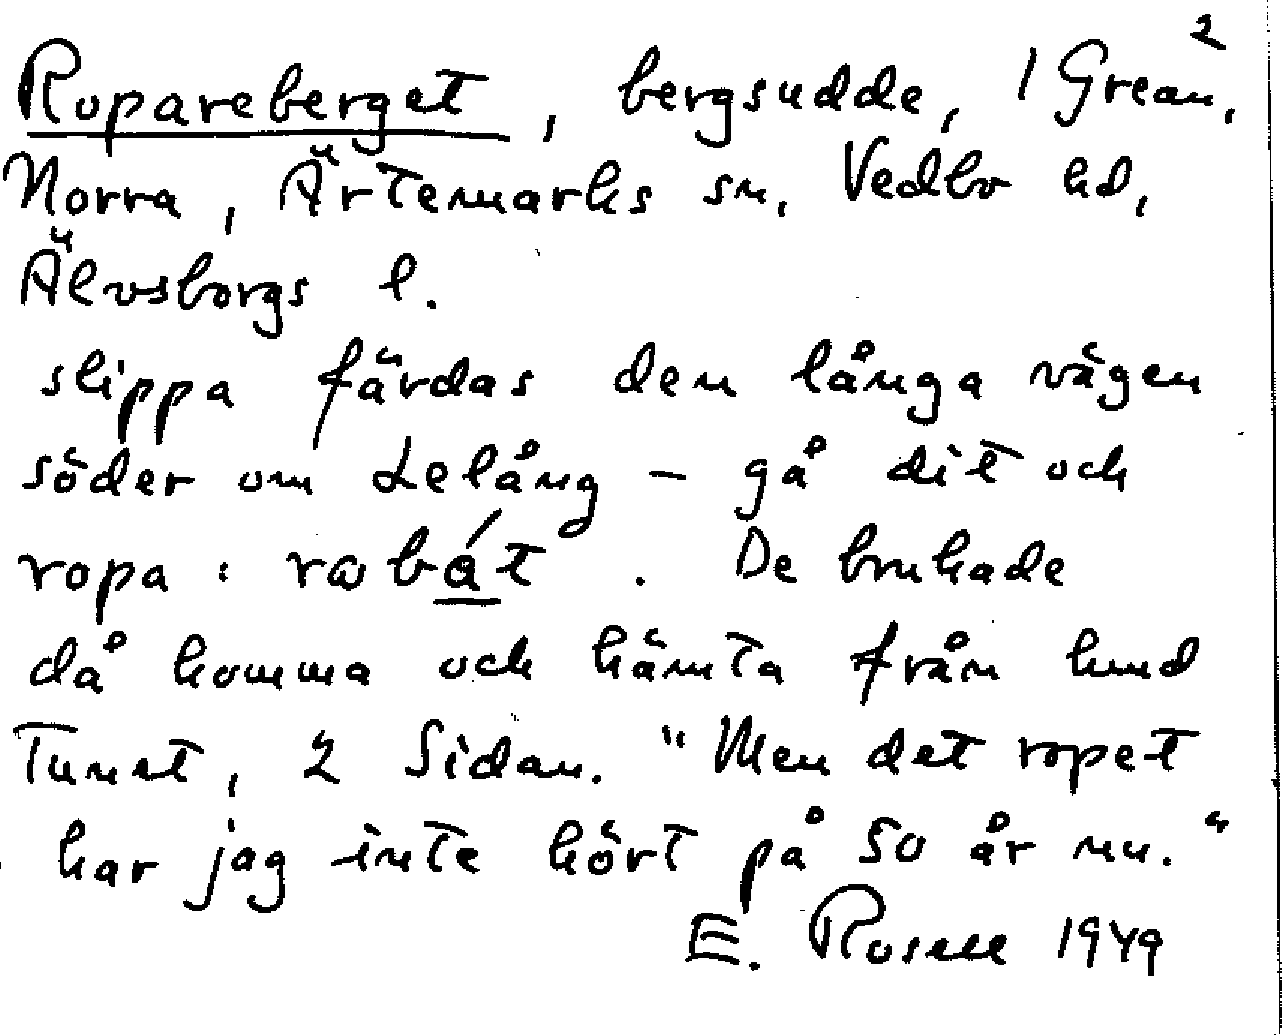 2
Ropareberget, bergsudde, 1 Grean,
Norra, Ärtemarks sn, Vedbo hd,
Älvsborgs l.
slippa färdas den långa vägen
söder om Lelång – gå dit och
ropa: robåt. De brukade
då komma och hämta från hmd
Tunet, 2 Sidan. "Men det ropet
har jag inte hört på 50 år nu."
E. Rosell 1949